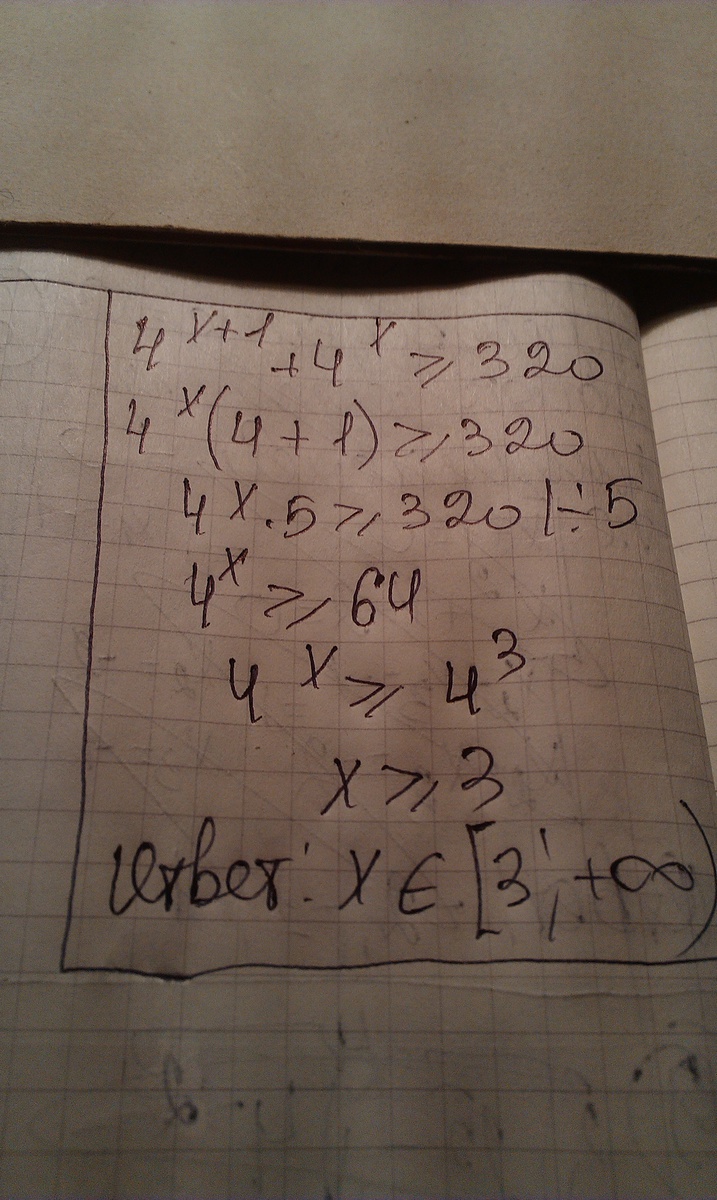 4^{x+1} + 4^x ⩾ 320
4^x (4 + 1) ⩾ 320
4^x · 5 ⩾ 320 | ÷ 5
4^x ⩾ 64
4^x ⩾ 4^3
x ⩾ 3
Ответ: x ∈ [3; +∞)